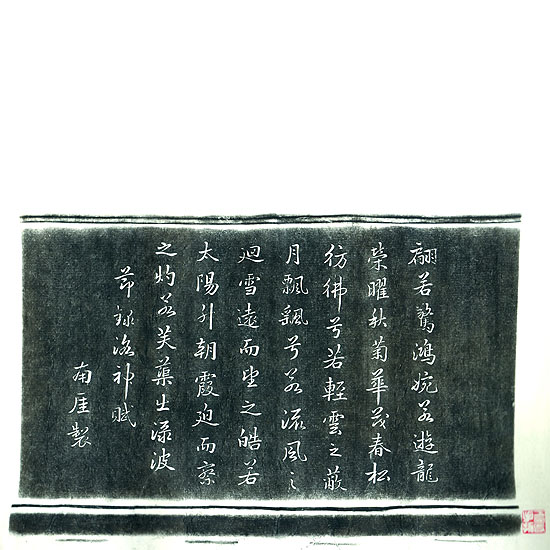 翩若驚鴻婉若遊龍
榮曜秋菊華茂春松
彷彿兮若輕雲之蔽
月飄飖兮若流風之
迴雪遠而望之皓若
太陽升朝霞迫而察
之灼若芙蕖出渌波
節錄洛神賦
南厓製